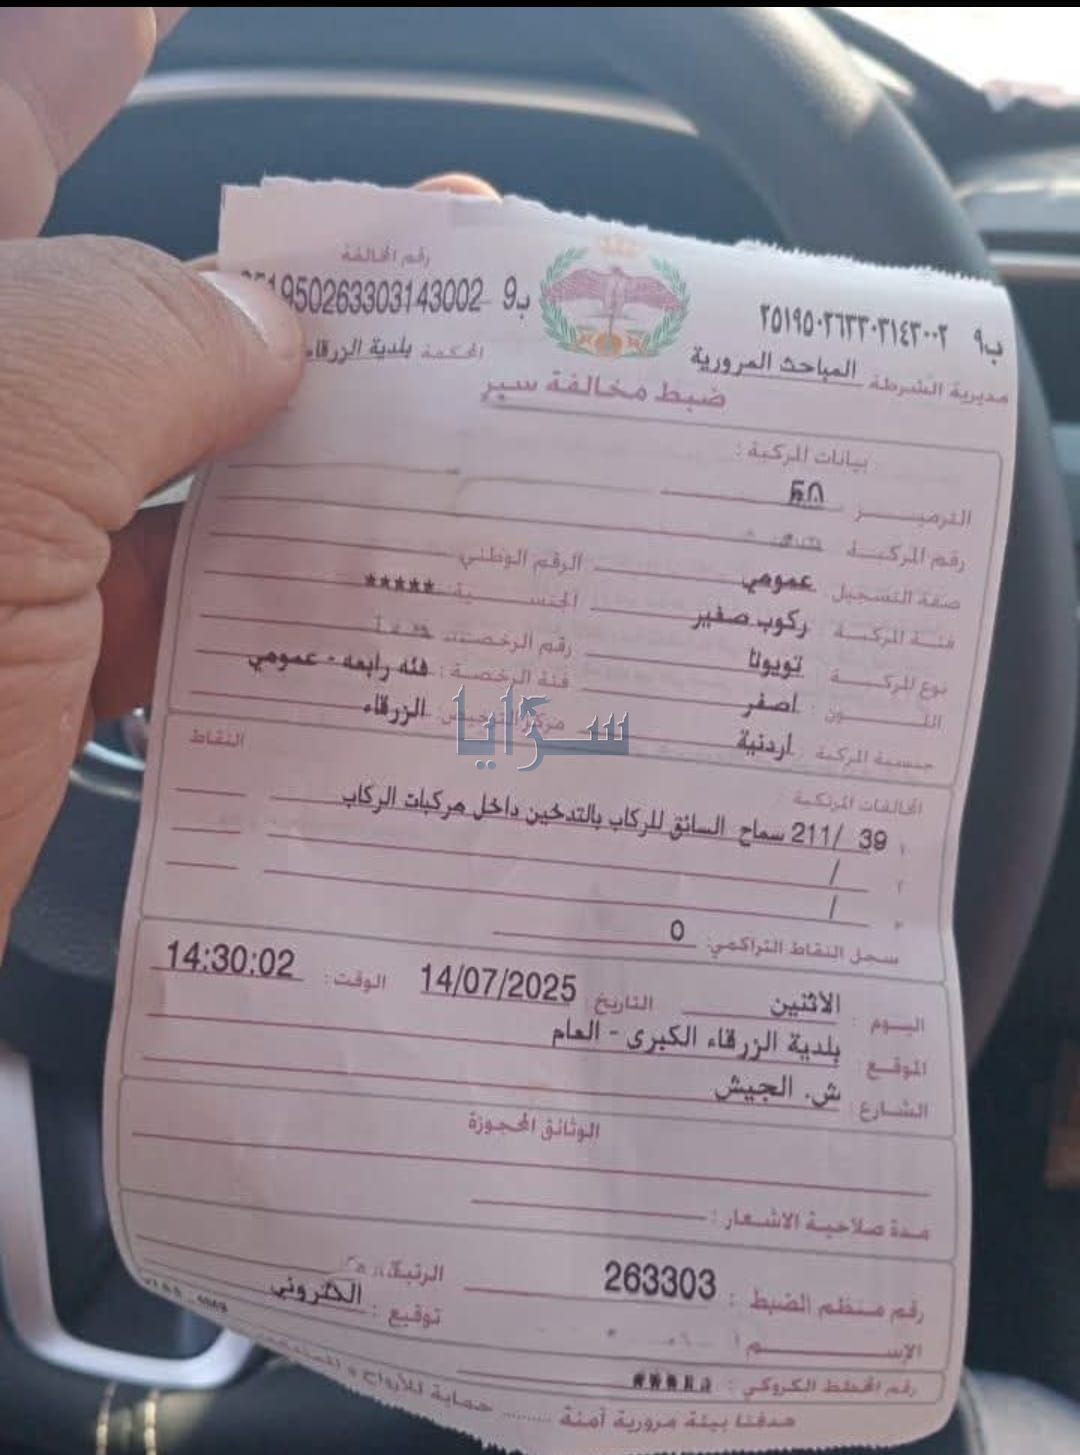 رقم المخالفة
ب9 ٢٥١٩٥٠٢٦٣٣٠٣١٤٣٠٠٢
950263303143002 ب9
مديرية الشرطة المباحث المرورية
المحكمة بلدية الزرقاء
ضبط مخالفة سير
بيانات المركبة :
الترميـــز
رقم المركبة
صفة التسجيل : عمومي
الرقم الوطني
فئة المركبة : ركوب صغير
الجنســـية : *****
نوع المركبة : تويوتا
رقم الرخصة
اللـــون : اصفر
فئة الرخصة : فئه رابعه - عمومي
جنسية المركبة : أردنية
مركز الترخيص : الزرقاء
سرايا
المخالفات المرتكبة
النقاط
١ 39 /211 سماح السائق للركاب بالتدخين داخل مركبات الركاب
٢ /
٣ /
سجل النقاط التراكمي: 0
اليـــوم : الاثنين التاريخ : 14/07/2025 الوقت : 14:30:02
الموقـــع : بلدية الزرقاء الكبرى - العام
الشـــارع : ش. الجيش
الوثائق المحجوزة
مدة صلاحية الاشعار :
رقم منظم الضبط : 263303 الرتبة
الإســـم : توقيع : الكتروني
رقم المخطط الكروكي :
هدفنا بيئة مرورية آمنة ......... حماية للأرواح و